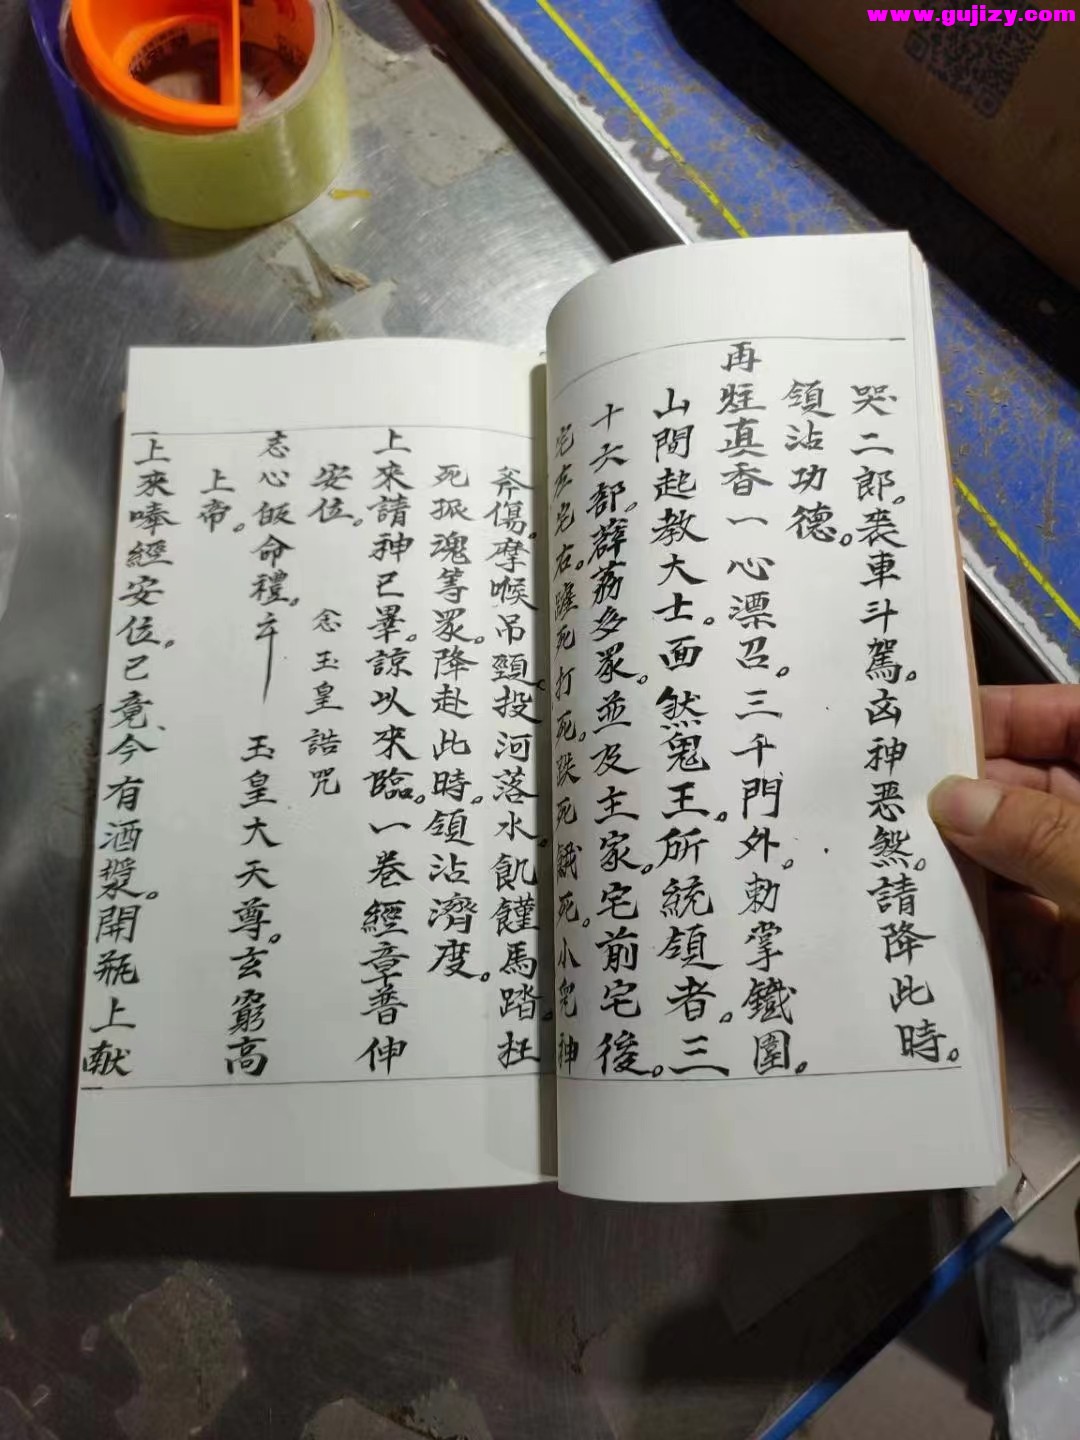 www.gujizy.com
哭二郎。丧車斗駕。凶神恶煞。請降此時。
領沾功德。
再炷真香一心漂召。三千門外。勅掌鐵圍。
山間起教大士。面然鬼王。所統領者。三
十六部。薜荔多眾。並及主家。宅前宅後。
宅左宅右。瘧死打死。跌死餓死。小兒神
斧傷。摩喉吊頸。投河落水。飢饉馬踏。枉
死孤魂等眾。降赴此時。領沾濟度。
上來請神已畢。諒以來臨。一卷經章普伸
安位。 念玉皇誥咒
志心皈命禮 玉皇大天尊。玄穹高
上帝。
上來唪經安位。已竟、今有酒漿。開瓶上献